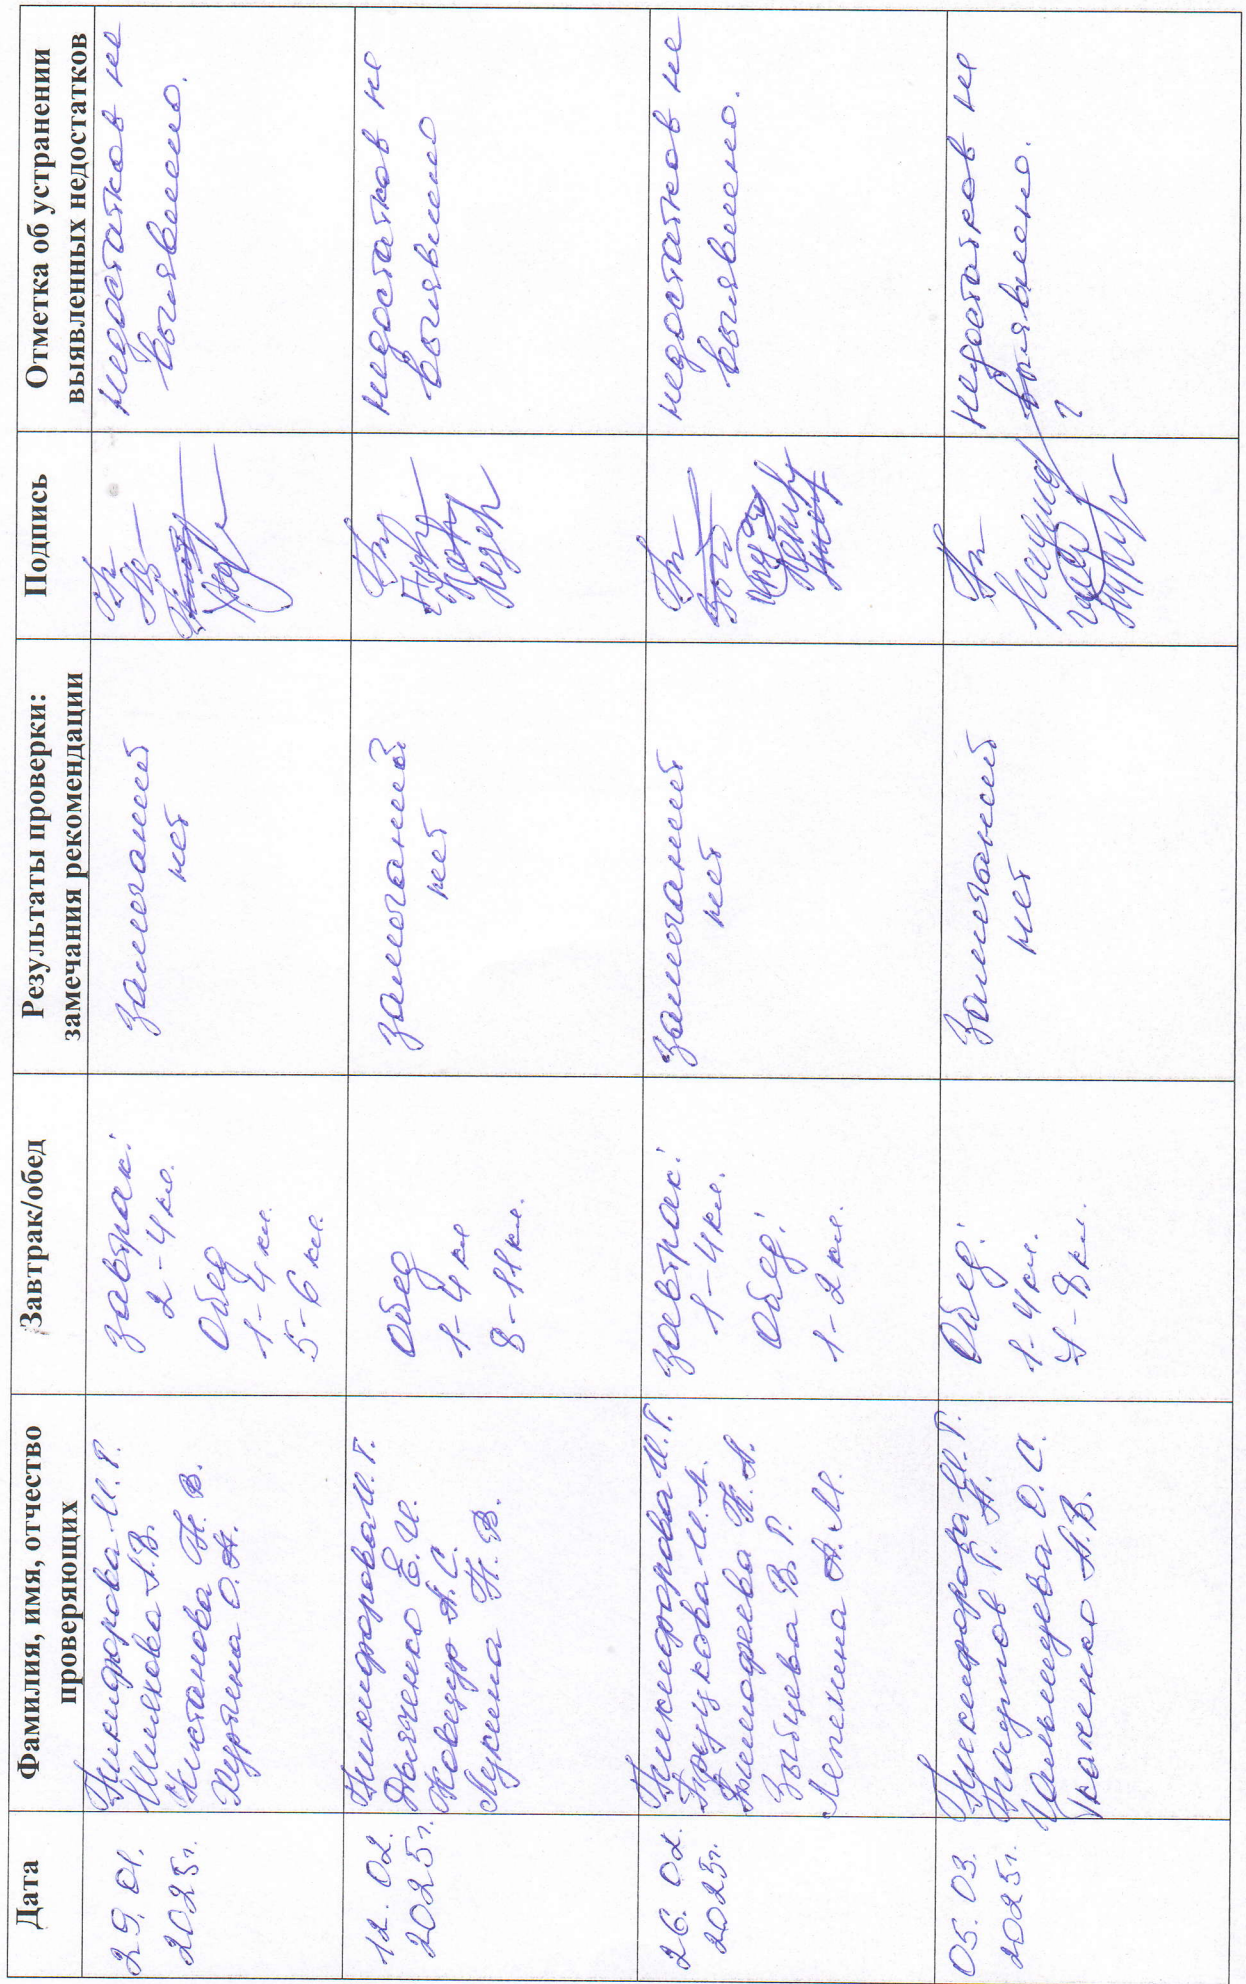 Дата
Фамилия, имя, отчество
проверяющих
Завтрак/обед
Результаты проверки:
замечания рекомендации
Подпись
Отметка об устранении
выявленных недостатков
29.01.
2025г.
Никифорова И.Г.
Шилякова А.В.
Н. В.
Курячна О.А.
завтрак:
2-4 кл.
Обед
1-4 кл.
5-6 кл.
Замечаний
нет
недостатков не
выявлено.
12.02.
2025г.
Никифорова И.Г.
Дьяченко Е.И.
А.С.
Лукина Н.В.
Обед
1-4 кл
8-11 кл.
замечаний
нет
недостатков не
выявлено
26.02.
2025г.
Никифорова И.Г.
И.А.
Тимофеева Н.А.
Зыбцева В.Г.
Лепехина А.М.
завтрак:
1-4 кл.
Обед:
1-2 кл.
замечаний
нет
недостатков не
выявлено.
05.03.
2025г.
Никифорова И.Г.
Г.А.
О.С.
А.В.
Обед:
1-4 кл.
7-8 кл.
Замечаний
нет
недостатков не
выявлено.